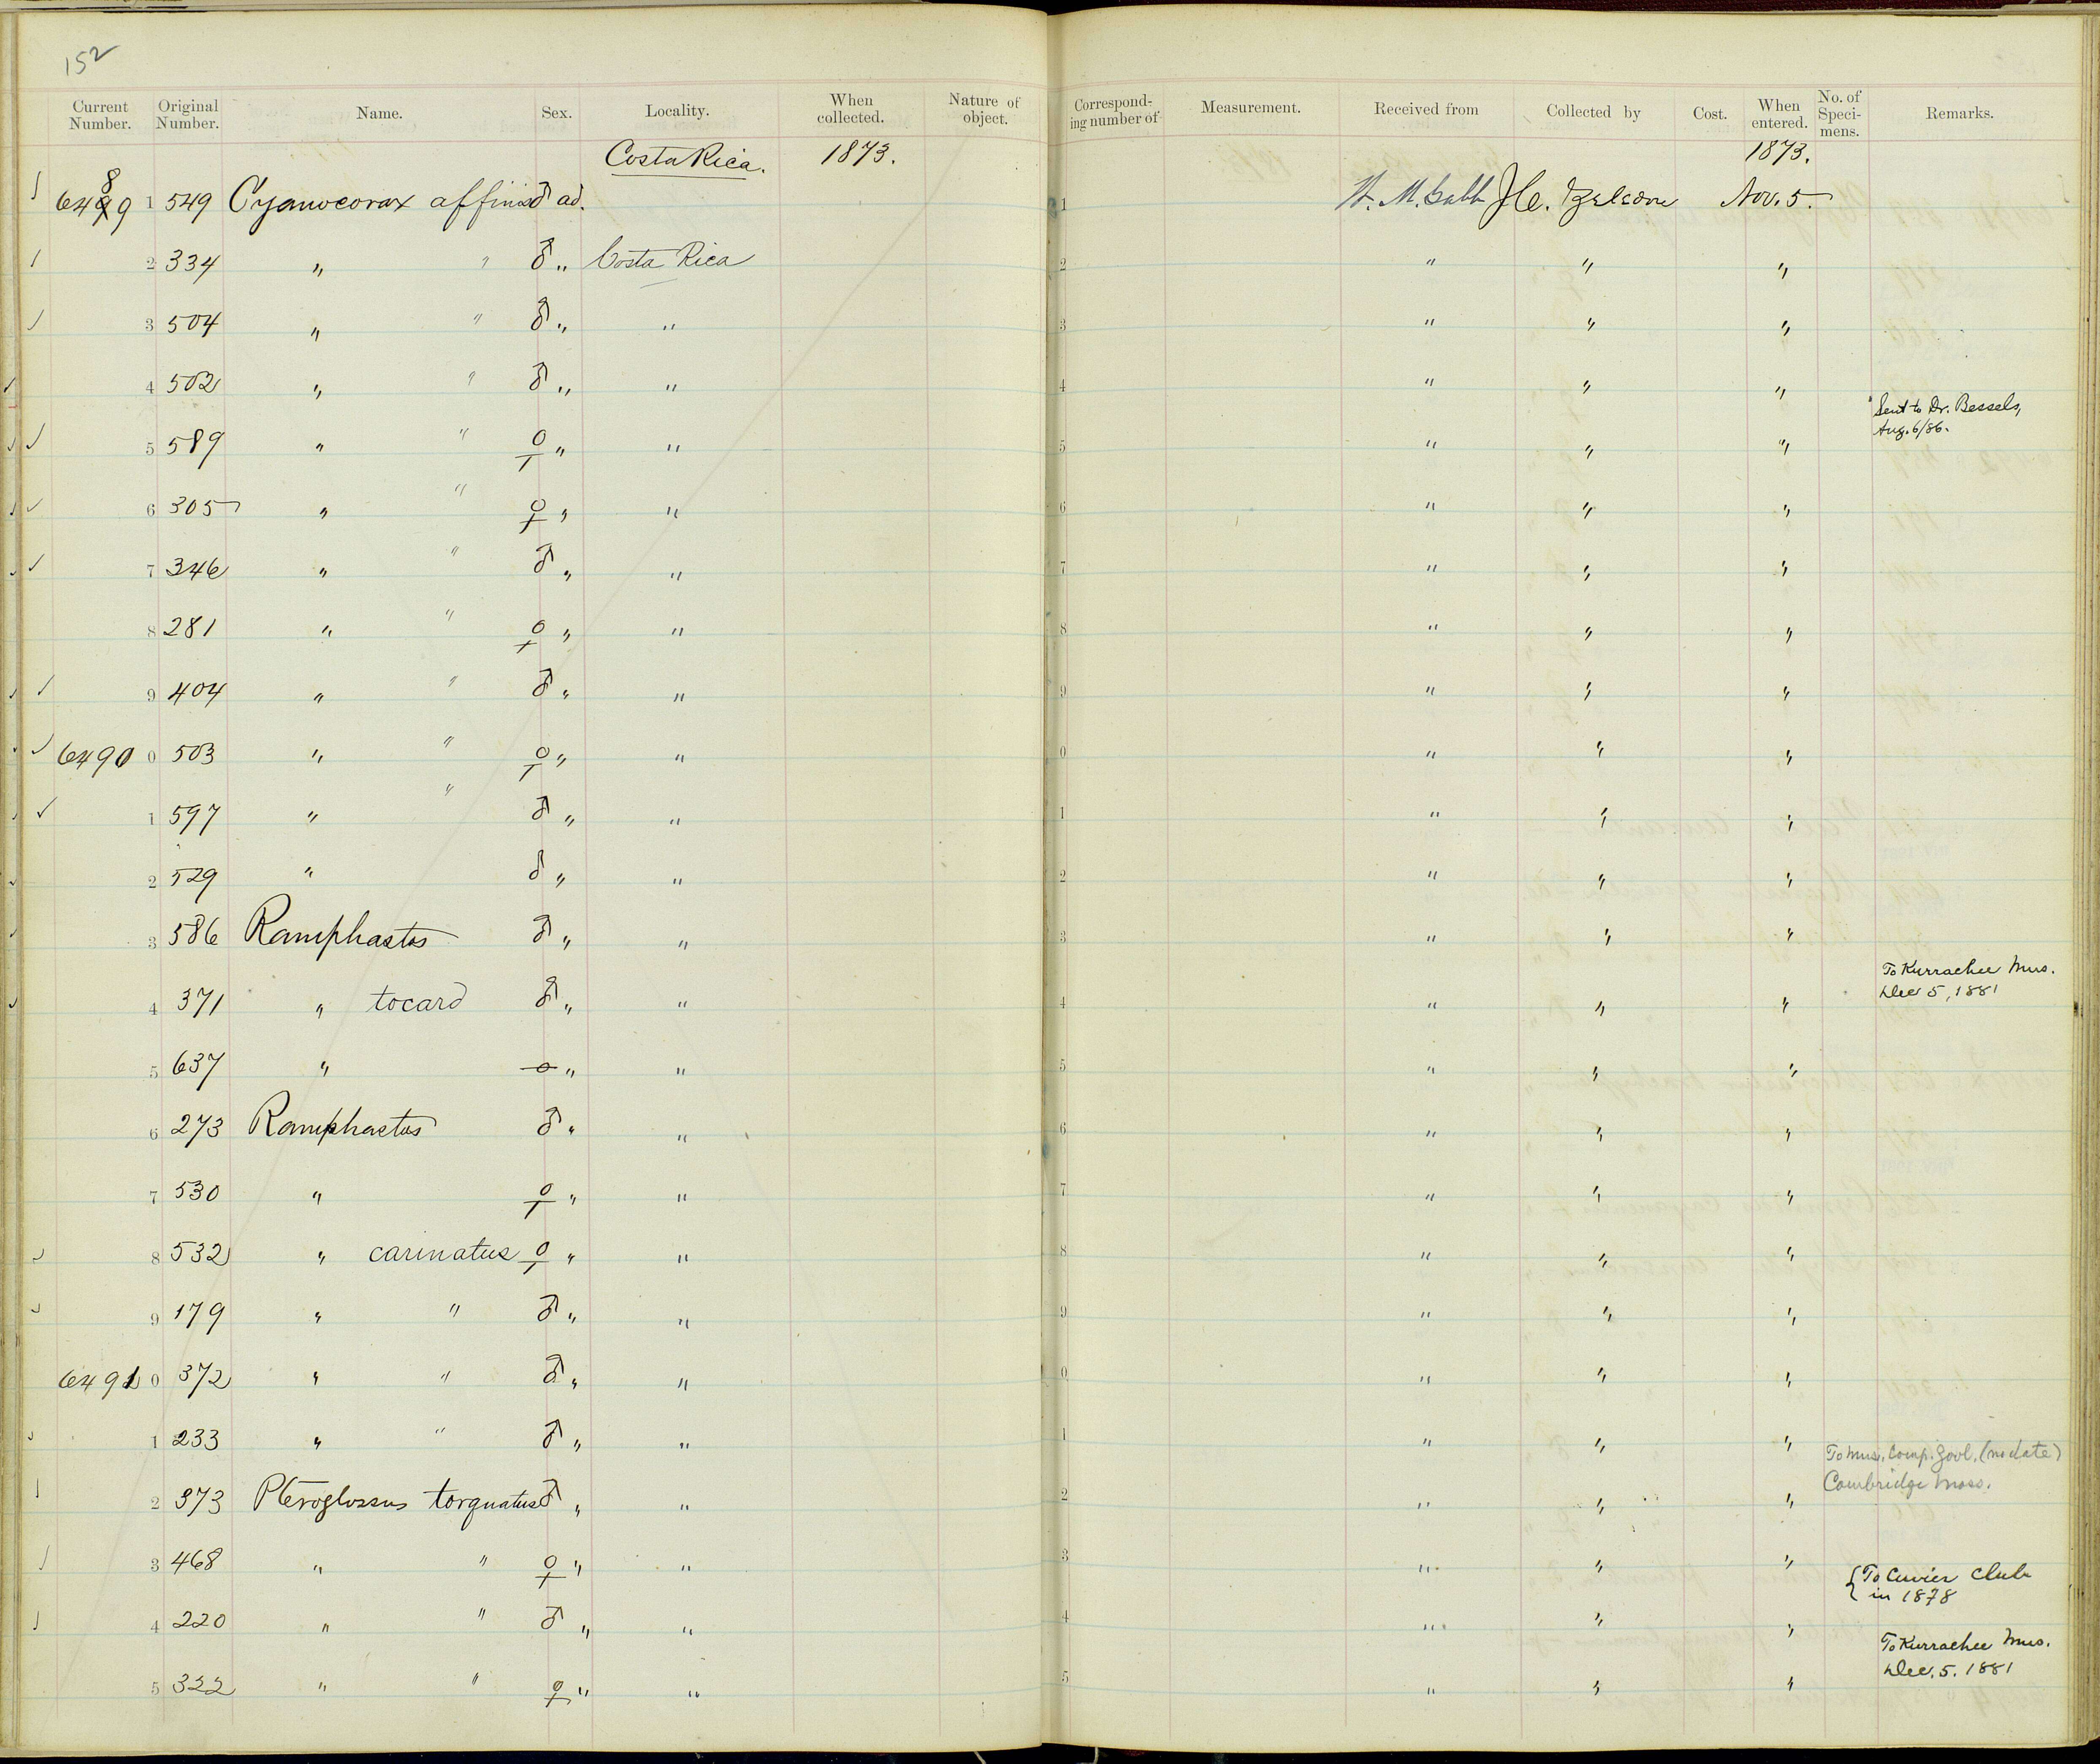 152
Current Number. Original Number. Name. Sex. Locality. When collected. Nature of object. Correspond- ing number of Measurement. Received from Collected by Cost. When entered. No. of Speci- mens. Remarks.
Costa Rica. 1873. 1873.
8
6499 1 549 Cyanocorax affinis ♂ ad. 1 W. M. Gabb J. C. Zeledon Nov. 5.
2 334 " " ♂ " Costa Rica 2 " " "
3 504 " " ♂ " " 3 " " "
4 502 " " ♂ " " 4 " " "
Sent to Dr. Bessels,
Aug. 6/86.
5 589 " " ♀ " " 5 " " "
6 305 " " ♀ " " 6 " " "
7 346 " " ♂ " " 7 " " "
8 281 " " ♀ " " 8 " " "
9 404 " " ♂ " " 9 " " "
6490 0 503 " " ♀ " " 0 " " "
1 597 " " ♂ " " 1 " " "
2 529 " ♂ " " 2 " " "
3 586 Ramphastos ♂ " " 3 " " "
To Kurrachee Mus.
Dec 5, 1881
4 371 " tocard ♂ " " 4 " " "
5 637 " " " 5 " " "
6 273 Ramphastos ♂ " " 6 " " "
7 530 " ♀ " " 7 " " "
8 532 " carinatus ♀ " " 8 " " "
9 179 " " ♂ " " 9 " " "
6491 0 372 " " ♂ " " 0 " " "
1 233 " " ♂ " " 1 " " "
To Mus. Comp. Zool. (no date)
Cambridge Mass.
2 373 Pteroglossus torquatus ♂ " " 2 " " "
3 468 " " ♀ " " 3 " " "
To Cuvier Club
in 1878
4 220 " " ♂ " " 4 " " "
To Kurrachee Mus.
Dec. 5. 1881
5 322 " " ♀ " " 5 " " "